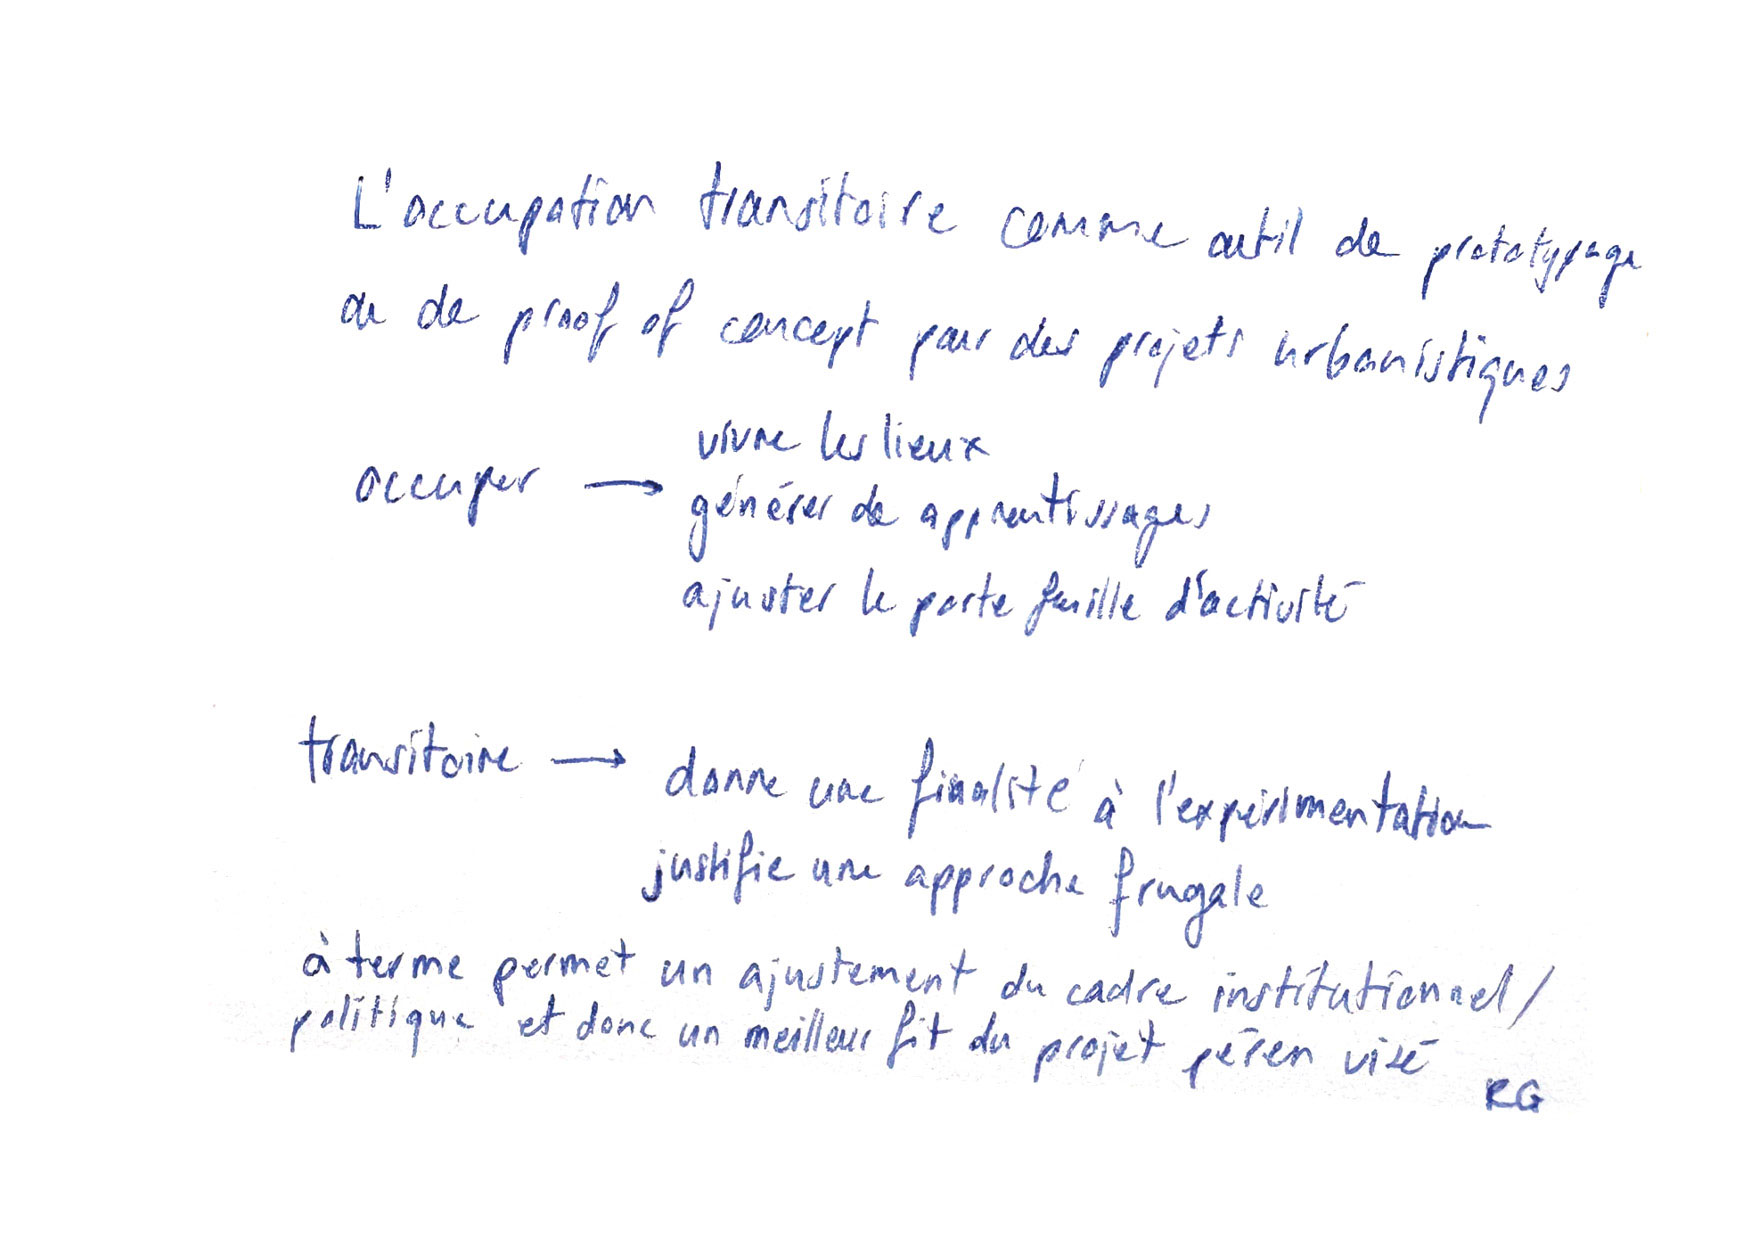 L'occupation transitoire comme outil de prototypage
ou de proof of concept pour des projets urbanistiques
occuper → vivre les lieux
générer de apprentissages
ajuster le porte feuille d'activité
transitoire → donne une finalité à l'expérimentation
justifie une approche frugale
à terme permet un ajustement du cadre institutionnel/
politique et donc un meilleur fit du projet péren visé
RG